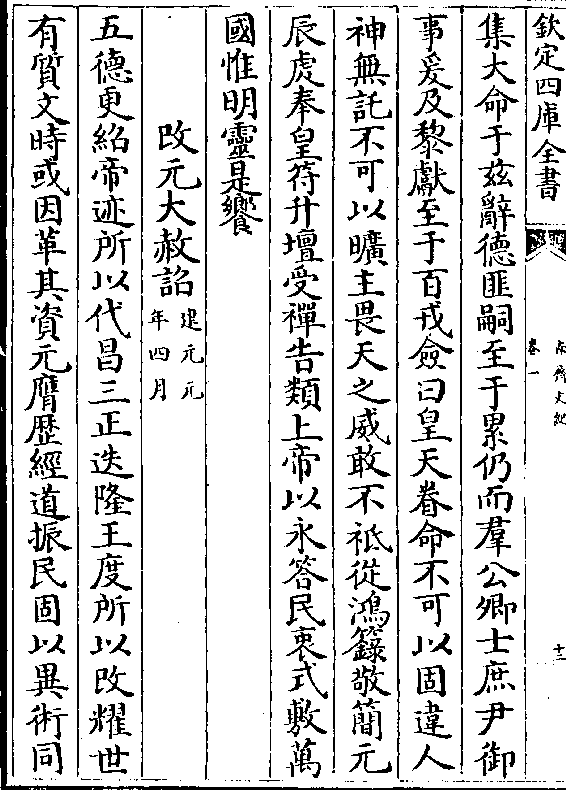 欽定四庫全書
南齊文紀
卷一
十二
集大命于兹辭德匪嗣至于累仍而羣公卿士庶尹御
事爰及黎獻至于百戎僉曰皇天眷命不可以固違人
神無託不可以曠主畏天之威敢不祗從鴻籙敬簡元
辰虔奉皇符升壇受禪告類上帝以永答民衷式敷萬
國惟明靈是饗
改元大赦詔建元元年四月
五德更紹帝迹所以代昌三正迭隆王度所以改耀世
有質文時或因革其資元膺歴經道振民固以異術同